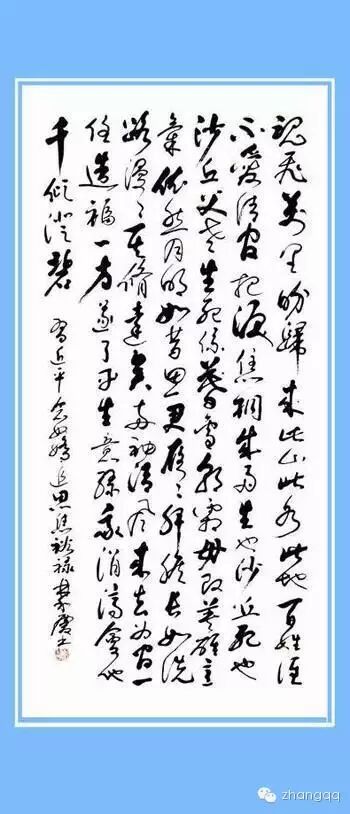 魂飛萬里盼歸來此山此水此地百姓谁
不愛清官把淚焦桐成雨生也沙丘死也
沙丘父老生死係暮雪朝霜毋改英雄意
氣依然月明如昔思君夜夜肝膽長如洗
路漫漫其脩遠矣兩袖清風來去为官一
任造福一方遂了平生意绿我涓滴會他
千顷澄碧
習近平念奴嬌追思焦裕禄
zhangqq